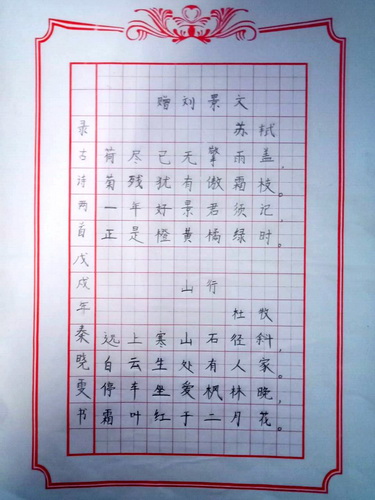 赠刘景文
苏轼
荷尽已无擎雨盖，
菊残犹有傲霜枝。
一年好景君须记，
正是橙黄橘绿时。
山行
杜牧
远上寒山石径斜，
白云生处有人家。
停车坐爱枫林晚，
霜叶红于二月花。
录古诗两首戊戌年秦晓雯书